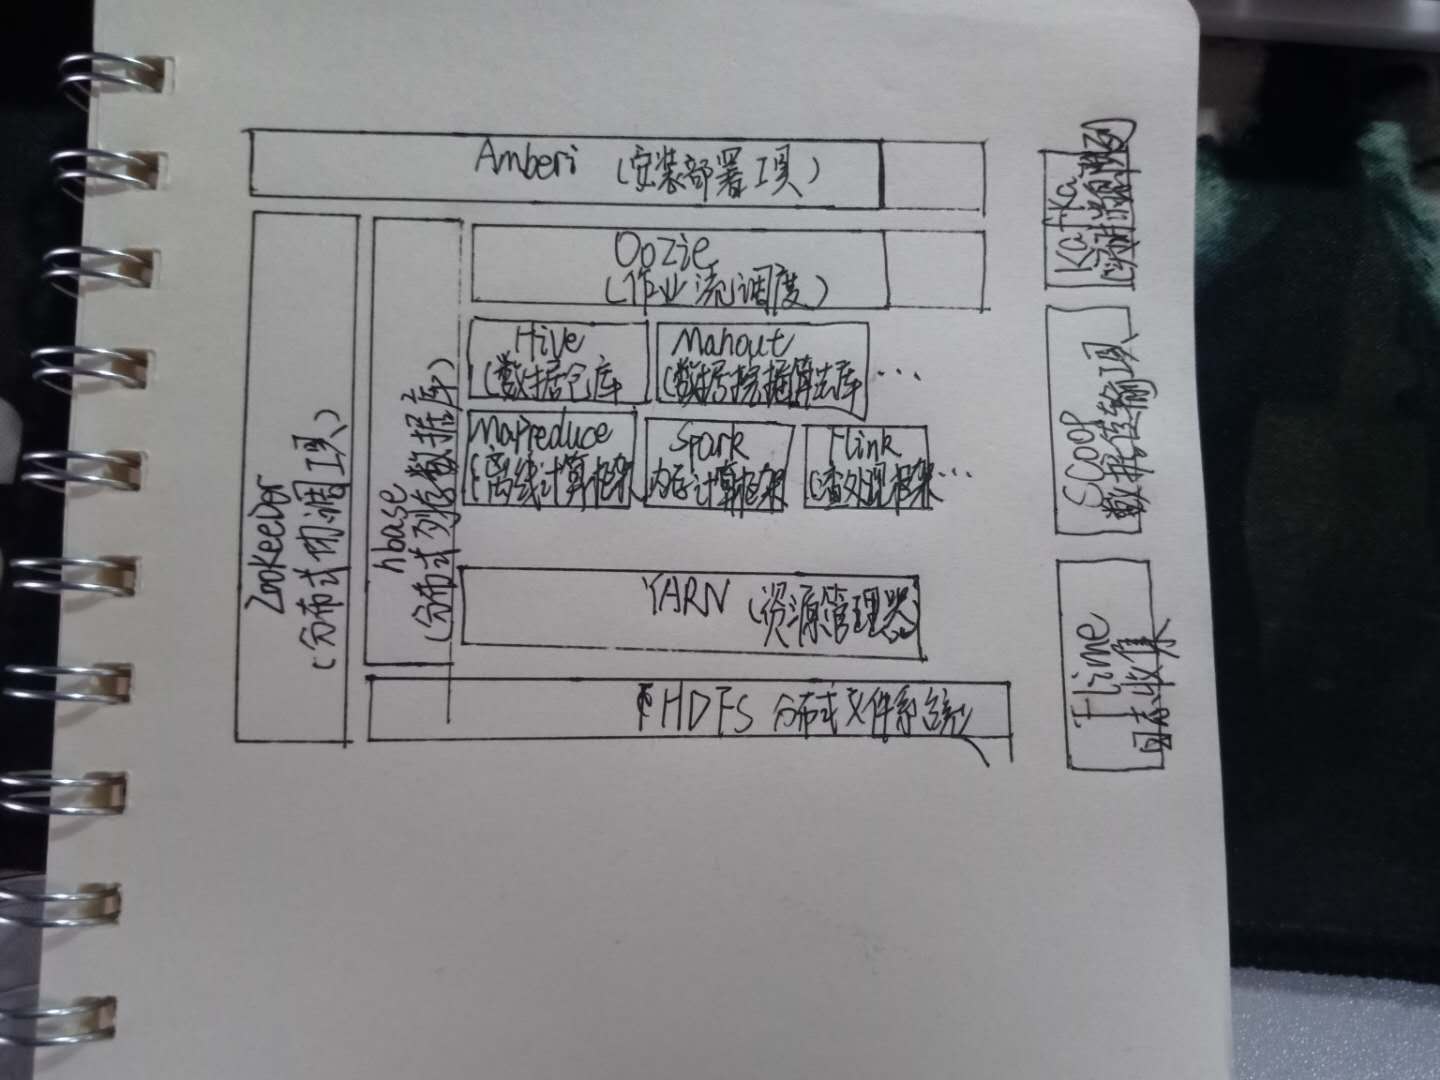 Amberi (安装部署工具)
Zookeeper
(分布式协调工具)
hbase
(分布式列存数据库)
Oozie
(作业流调度)
Hive
(数据仓库
Mahout
(数据挖掘算法库
...
Mapreduce
(离线计算框架
Spark
内存计算框架
Flink
处理框架
...
YARN (资源管理器)
HDFS 分布式文件系统
Kafka
SCoop
数据传输工具
Flime
日志收集